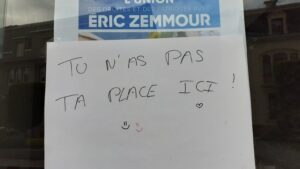 L'UNION
ÉRIC ZEMMOUR
TU N'AS PAS
TA PLACE ICI !